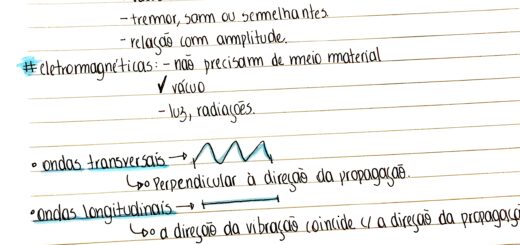 - tremor, som ou semelhantes
- relação com amplitude.
# eletromagnéticas: - não precisam de meio material
✓ vácuo
- luz, radiações.
• ondas transversais →
↳ Perpendicular à direção da propagação.
• ondas longitudinais →
↳ a direção da vibração coincide c/ a direção da propagaçã